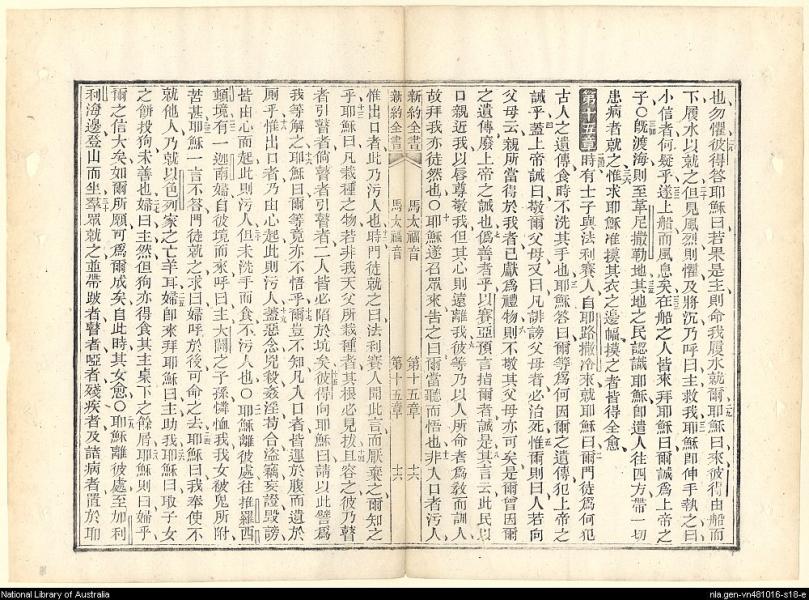 也勿懼彼得答耶穌曰若果是主則命我履水就爾耶穌曰來彼得由船而
下履水以就之但見風烈則懼及將沉乃呼曰主救我耶穌即伸手執之曰
小信者何疑乎遂上船而風息矣在船之人皆來拜耶穌曰爾誠爲上帝之
子○旣渡海則至革尼撒勒地其地之民認識耶穌卽遣人往四方帶一切
患病者就之惟求耶穌准摸其衣之邊幅摸之者皆得全愈
第十五章時有士子與法利賽人自耶路撒冷來就耶穌曰爾門徒爲何犯
古人之遺傳食時不洗其手也耶穌答曰爾等爲何因爾之遺傳犯上帝之
誡乎蓋上帝誡曰敬爾父母又曰凡誹謗父母者必治死惟爾則曰人若向
父母云親所當得於我者已獻爲禮物則不敬其父母亦可矣是爾曾因爾
之遺傳廢上帝之誡也僞善者乎以賽亞預言指爾者誠是其言云此民以
口親近我以唇尊敬我但其心則遠離我彼等乃以人所命者爲敎而訓人
故拜我亦徒然也○耶穌遂召眾來告之曰爾當聽而悟也非入口者污人
新約全書 馬太福音 第十五章 十六
新約全書 馬太福音 第十五章 十六
惟出口者此乃污人也時門徒就之曰法利賽人聞此言而厭棄之爾知之
乎耶穌曰凡栽種之物若非我天父所栽種者其根必見拔且容之彼乃瞽
者引瞽者倘瞽者引瞽者二人皆必陷於坑矣彼得向耶穌曰請以此譬爲
我等解之耶穌曰爾等竟亦不悟乎爾豈不知凡入口者皆運於腹而遺於
厠乎惟出口者乃由心起此則污人蓋惡念兇殺姦淫苟合盜竊妄證毀謗
皆由心而起此則污人但未洗手而食不污人也○耶穌離彼處往推羅西
頓境有一迦南婦自彼境而來呼曰主大闢之子孫憐恤我我女被鬼所附
苦甚耶穌一言不答門徒就之求曰婦呼於後可命之去耶穌曰我奉使不
就他人乃就以色列家之亡羊耳婦卽來拜耶穌曰主助我耶穌曰取子女
之餅投狗未善也婦曰主然但狗亦得食其主桌下之餘屑耶穌則曰婦乎
爾之信大矣如爾所願可爲爾成矣自此時其女愈○耶穌離彼處至加利
利海邊登山而坐羣眾就之並帶跛者瞽者啞者殘疾者及諸病者置於耶
National Library of Australia
nla.gen-vn481016-s18-e